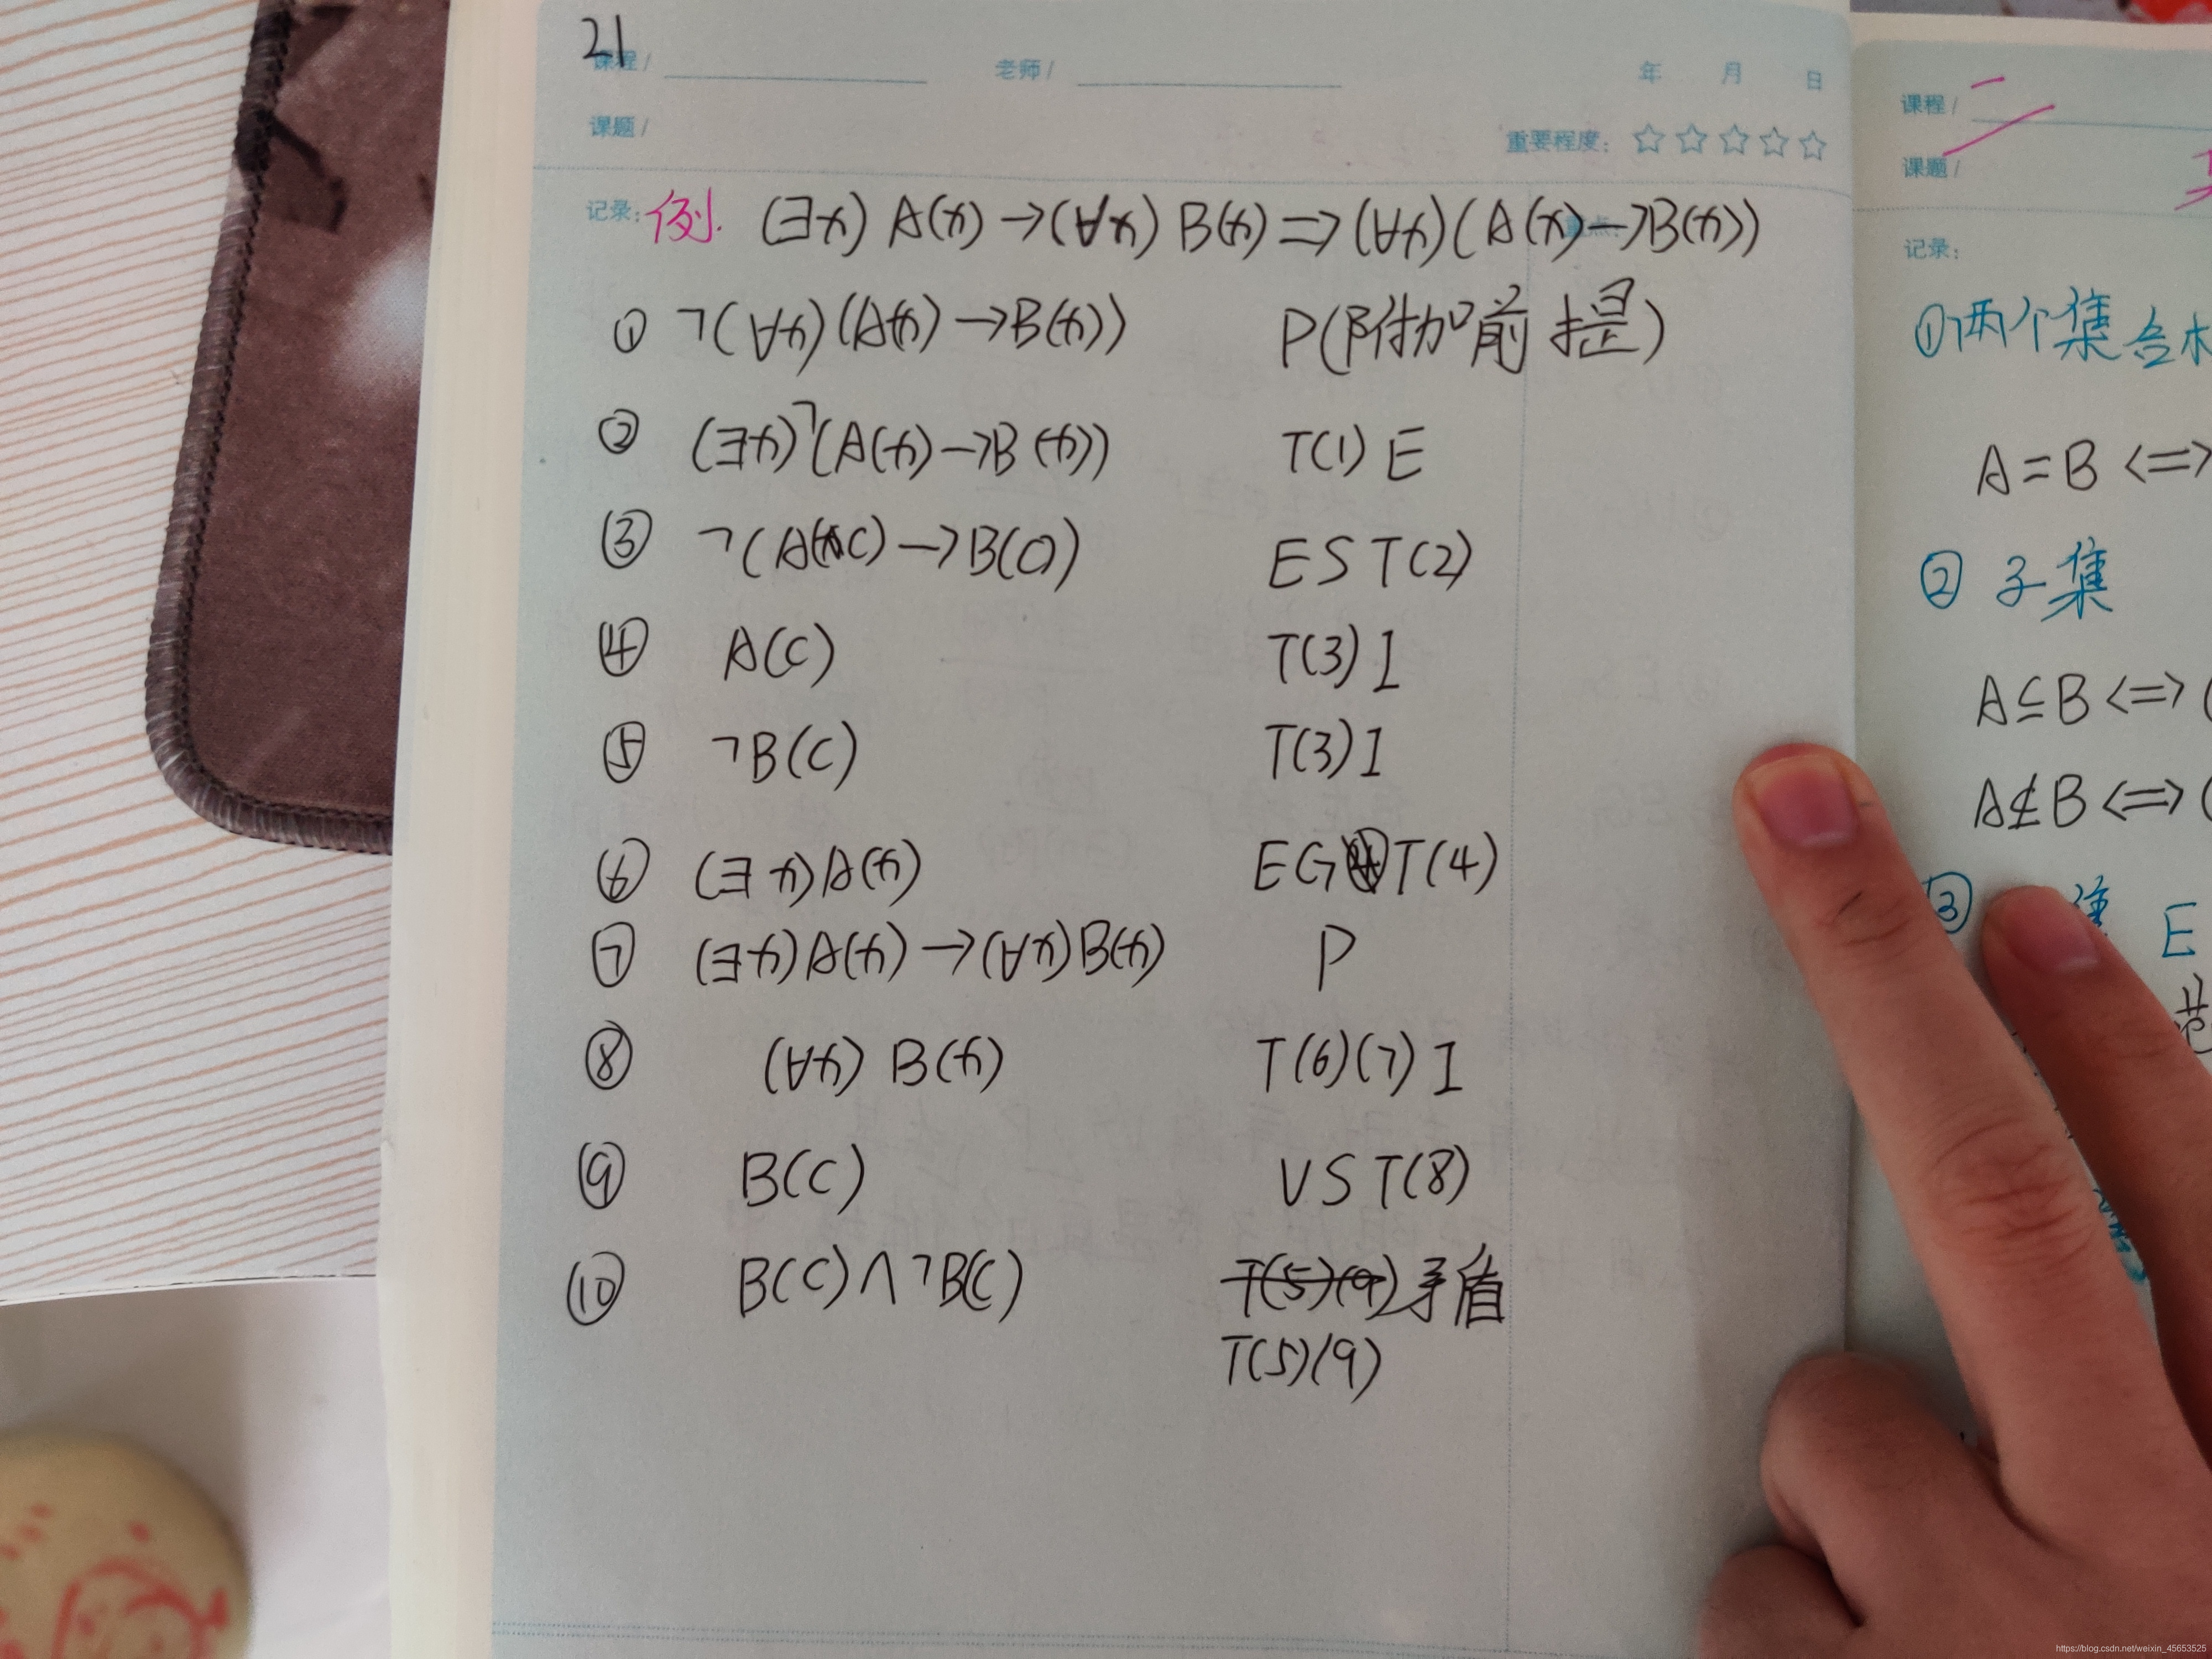 21
课程/ 老师/ 年 月 日
课题/ 重要程度: ☆☆☆☆☆
记录: 例. (∃x) A(x) → (∀x) B(x) ⇒ (∀x)(A(x)→B(x))
① ¬(∀x)(A(x)→B(x)) P(附加前提)
② (∃x)¬(A(x)→B(x)) T(1) E
③ ¬(A(c)→B(c)) ES T(2)
④ A(c) T(3) I
⑤ ¬B(c) T(3) I
⑥ (∃x)A(x) EG T(4)
⑦ (∃x)A(x)→(∀x)B(x) P
⑧ (∀x) B(x) T(6)(7) I
⑨ B(c) US T(8)
⑩ B(c)∧¬B(c) T(5)(9) 矛盾
T(5)(9)
课程/
课题/
记录:
①两个集合
A=B <=>
② 子集
A⊆B <=> (
A⊈B <=> (
③ 集 E
https://blog.csdn.net/weixin_45653525